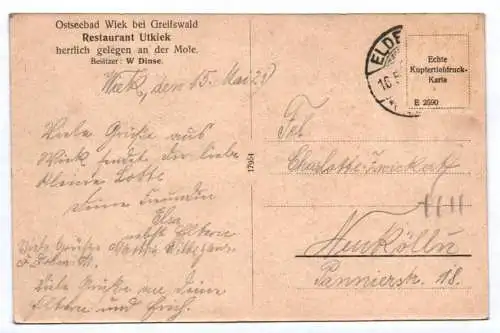 Ostseebad Wiek bei Greifswald
Restaurant Utkiek
herrlich gelegen an der Mole.
Besitzer: W Dinse.
Wiek, den 15. Mai 20
Viele Grüße aus
Wiek sendet dir liebe
kleine Lotte
deine Freundin
Elsa
nebst Eltern
Viele Grüße
Viele Grüße an deine
Eltern und Erich.
17954
ELDE
Echte
Kupfertiefdruck-
Karte
E 2590
Frl
Charlotte
Neukölln
Pannierstr. 18.